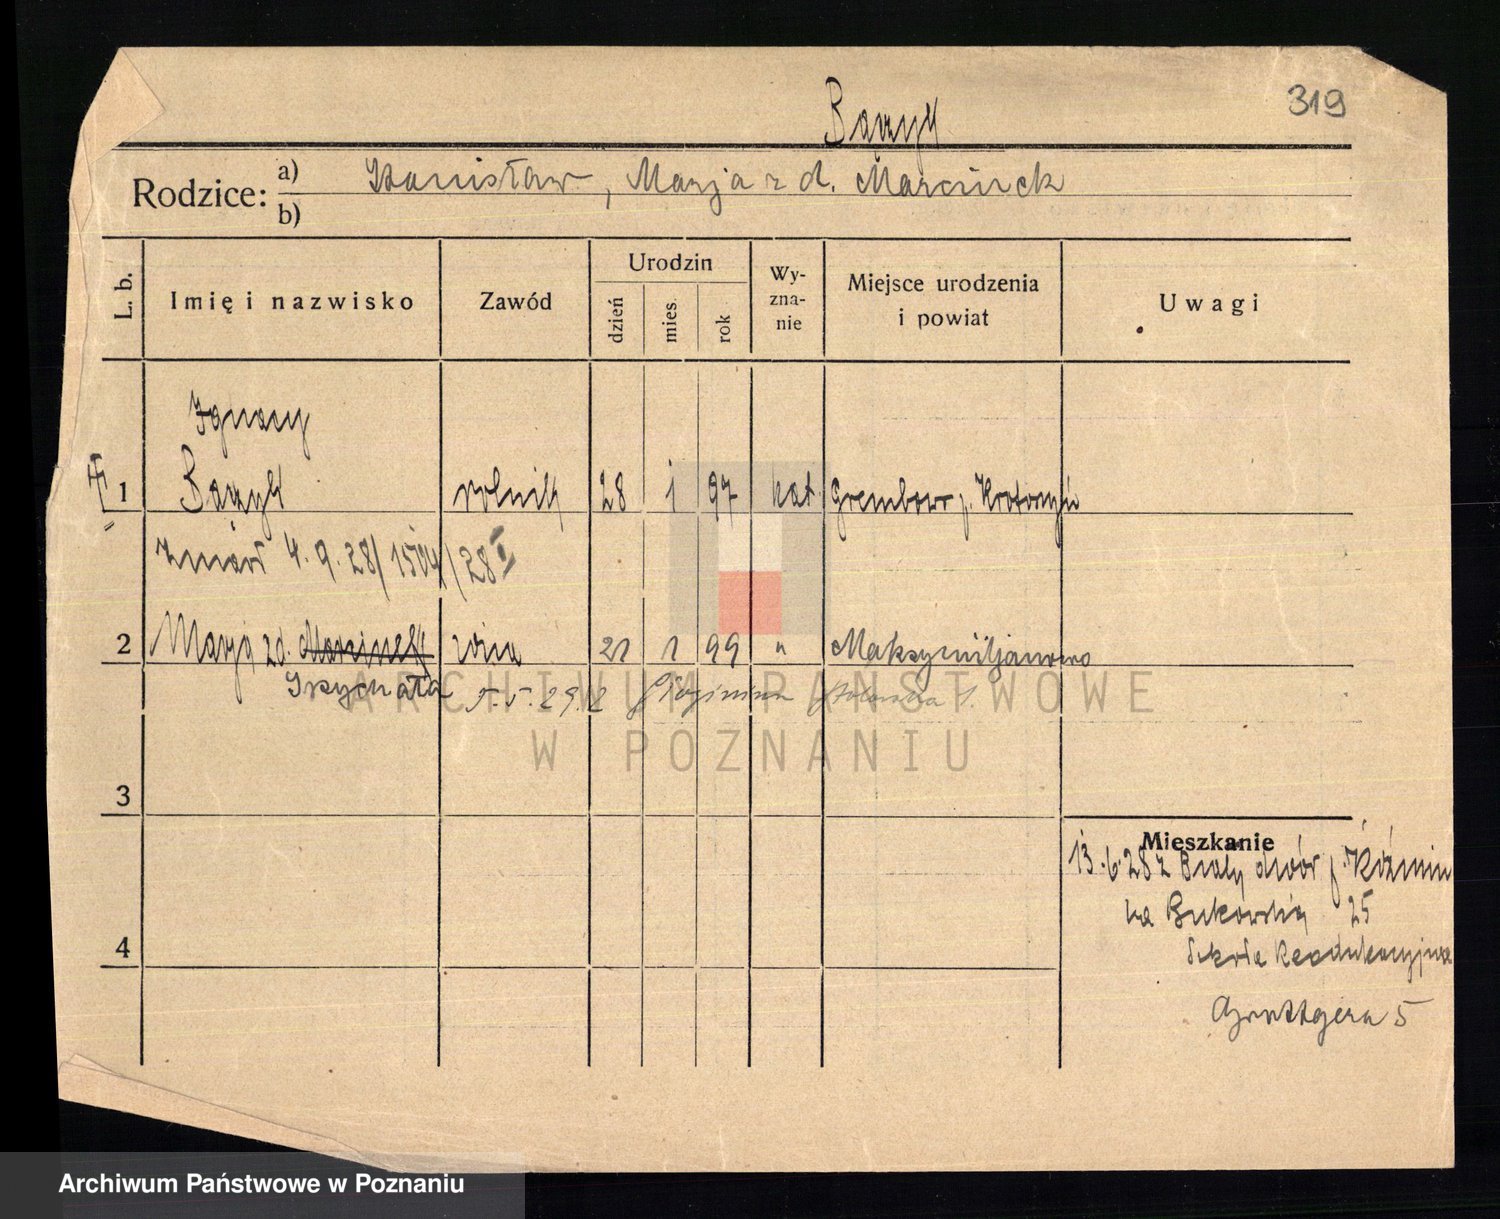 319
Bączyk
Rodzice: a) Stanisław, Marja z d. Marcinek
b)
L. b. Imię i nazwisko Zawód Urodzin dzień mies. rok Wy-zna-nie Miejsce urodzenia i powiat Uwagi
Ignacy
1 Bączyk rolnik 28 1 97 kat Grembow p. Krotoszyn
zmarł 4.9.28/1504/28 I
2 Marja zd. Marcinek żona 21 1 99 " Maksymiljanowo
Skrychała 5.5.29 z
3
Mieszkanie
13.6.28 z Biały dwór p. Koźmin
na Bukowską 25
4
Szkoła Reedukacyjna
Grottgera 5
ARCHIWUM PAŃSTWOWE
W POZNANIU
Archiwum Państwowe w Poznaniu